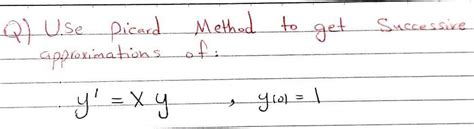 Q) Use Picard Method to get Successive
approximations of:
y' = x y , y(0) = 1